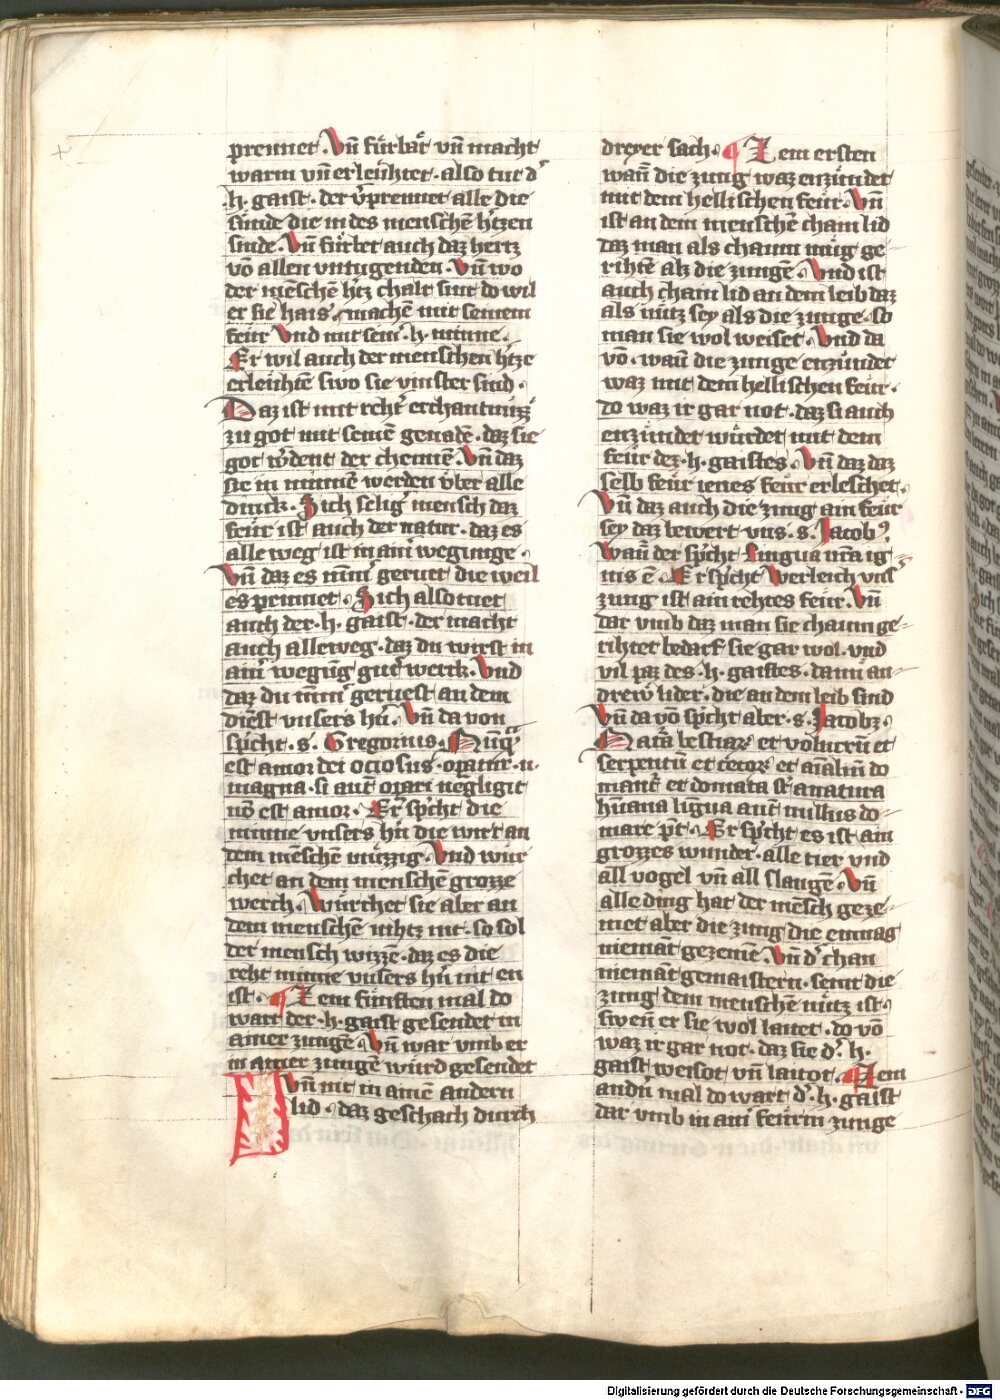 prennet. Vn̄ fürbat vn̄ macht
warm vn̄ erleuͤhtet. also tut d͛
.h. gaist. der v͛prennet alle die
suͤnde die in des menschē h͛tzen
sinde. Vn̄ fuͤrbet auch daz hertz
vō allen vntugenden. Vn̄ wo
der mēschē h͛tz chalt sint do wil
er sie hais machē mit seinem
feiur Vnd mit sein͛ .h. minne.
Er wil auch der menschen h͛tze
erleuͤhtē swo sie vinster sind.
Daz ist mit reht͛ erchantnuͤzz
zu got mit seinē genadē. daz sie
got w͛dent der chennē. Vn̄ daz
sie in minnē werden vber alle
dinck. Sich selig mensch daz
feiur ist auch der natur. daz es
alle weg ist in ain͛ wegunge.
Vn̄ daz es nim͛ geruet die weil
es prinnet. Sich also tuet
auch der .h. gaist. der macht
auch alleweg. daz du wirst in
ain͛ wegūg gut͛ werck. Vnd
daz du nim͛ geruest an dem
dienst vnsers h͛n. Vn̄ da von
sp͛icht .s. Gregorius. Nūq̄
est amor dei ociosus. operatur .n.
magna. si aut̄ op̄ari negligit
nō est amor. Er sp͛icht die
minne vnsers h͛n die wirt an
dem mēschē muͤzzig. Vnd wuͤr
chet an dem menschē grozze
werch. Wuͤrchet sie aber an
dem menschē nihtz nit. so sol
der mensch wizzē. daz es die
reht minne vnsers h͛n nit en
ist. ¶ Zem fuͤnften mal do
wart der .h. gaist gesendet in
ainer zungē. Vn̄ war vmb er
in ainer zungē wuͤrd gesendet
Vn̄ nit in ainē andern
lid. daz geschach durch
dreyer sach. ¶ Zem ersten
wan̄ die zung waz enzuͤndet
mit dem hellischen feiur. Vn̄
ist an dem menschē chain lid
daz man als chaum muͤg ge
rihtē als die zungē. Vnd ist
auch chain lid an dem leib daz
als nuͤtz sey als die zunge. so
man sie wol weiset. Vnd da
vō. wan̄ die zunge enzuͤndet
waz mit dem hellischen feiur.
do waz ir gar not. daz si auch
enzuͤndet wuͤrdet mit dem
feiur dez .h. gaistes. Vn̄ daz daz
selb feiur ienes feiur erleschet.
Vn̄ daz auch die zung ain feiur
sey daz bewert vns .s. Jacob⁹
wan̄ der sp͛icht Lingua nr̄a ig
nis ē. Er sp͛icht Werleich vns͛
zung ist ain rehtes feiur. Vn̄
dar vmb daz man sie chaum ge
rihtet bedarf sie gar wol. vnd
vil paz des .h. gaistes. dann an
drew lider. die an dem leib sind
Vn̄ da vō sp͛icht aber .s. Jacobꝫ.
Natā bestiaꝝ et volucrū et
serpentiū et cetoꝝ et aīaliū do
mant͛ et domata s̄t a natura
hūana lingua aut̄ nullus do
mare p̄t. Er sp͛icht es ist ain
grozzes wunder. alle tier vnd
all vogel vn̄ all slangē. Vn̄
alle ding hat der mēsch geze
met aber die zung die enmag
niemāt gezemē. Vn̄ d͛ chan
niemāt gemaistern. seint die
zung dem menschē nuͤtz ist.
swen̄ er sie wol laitet. do vō
waz ir gar not. daz sie d͛ .h.
gaist weisot vn̄ laitot. ¶ Zem
andn͛ mal do wart d͛ .h. gaist
dar vmb in ain͛ feiurin zunge
Digitalisierung gefördert durch die Deutsche Forschungsgemeinschaft - DFG